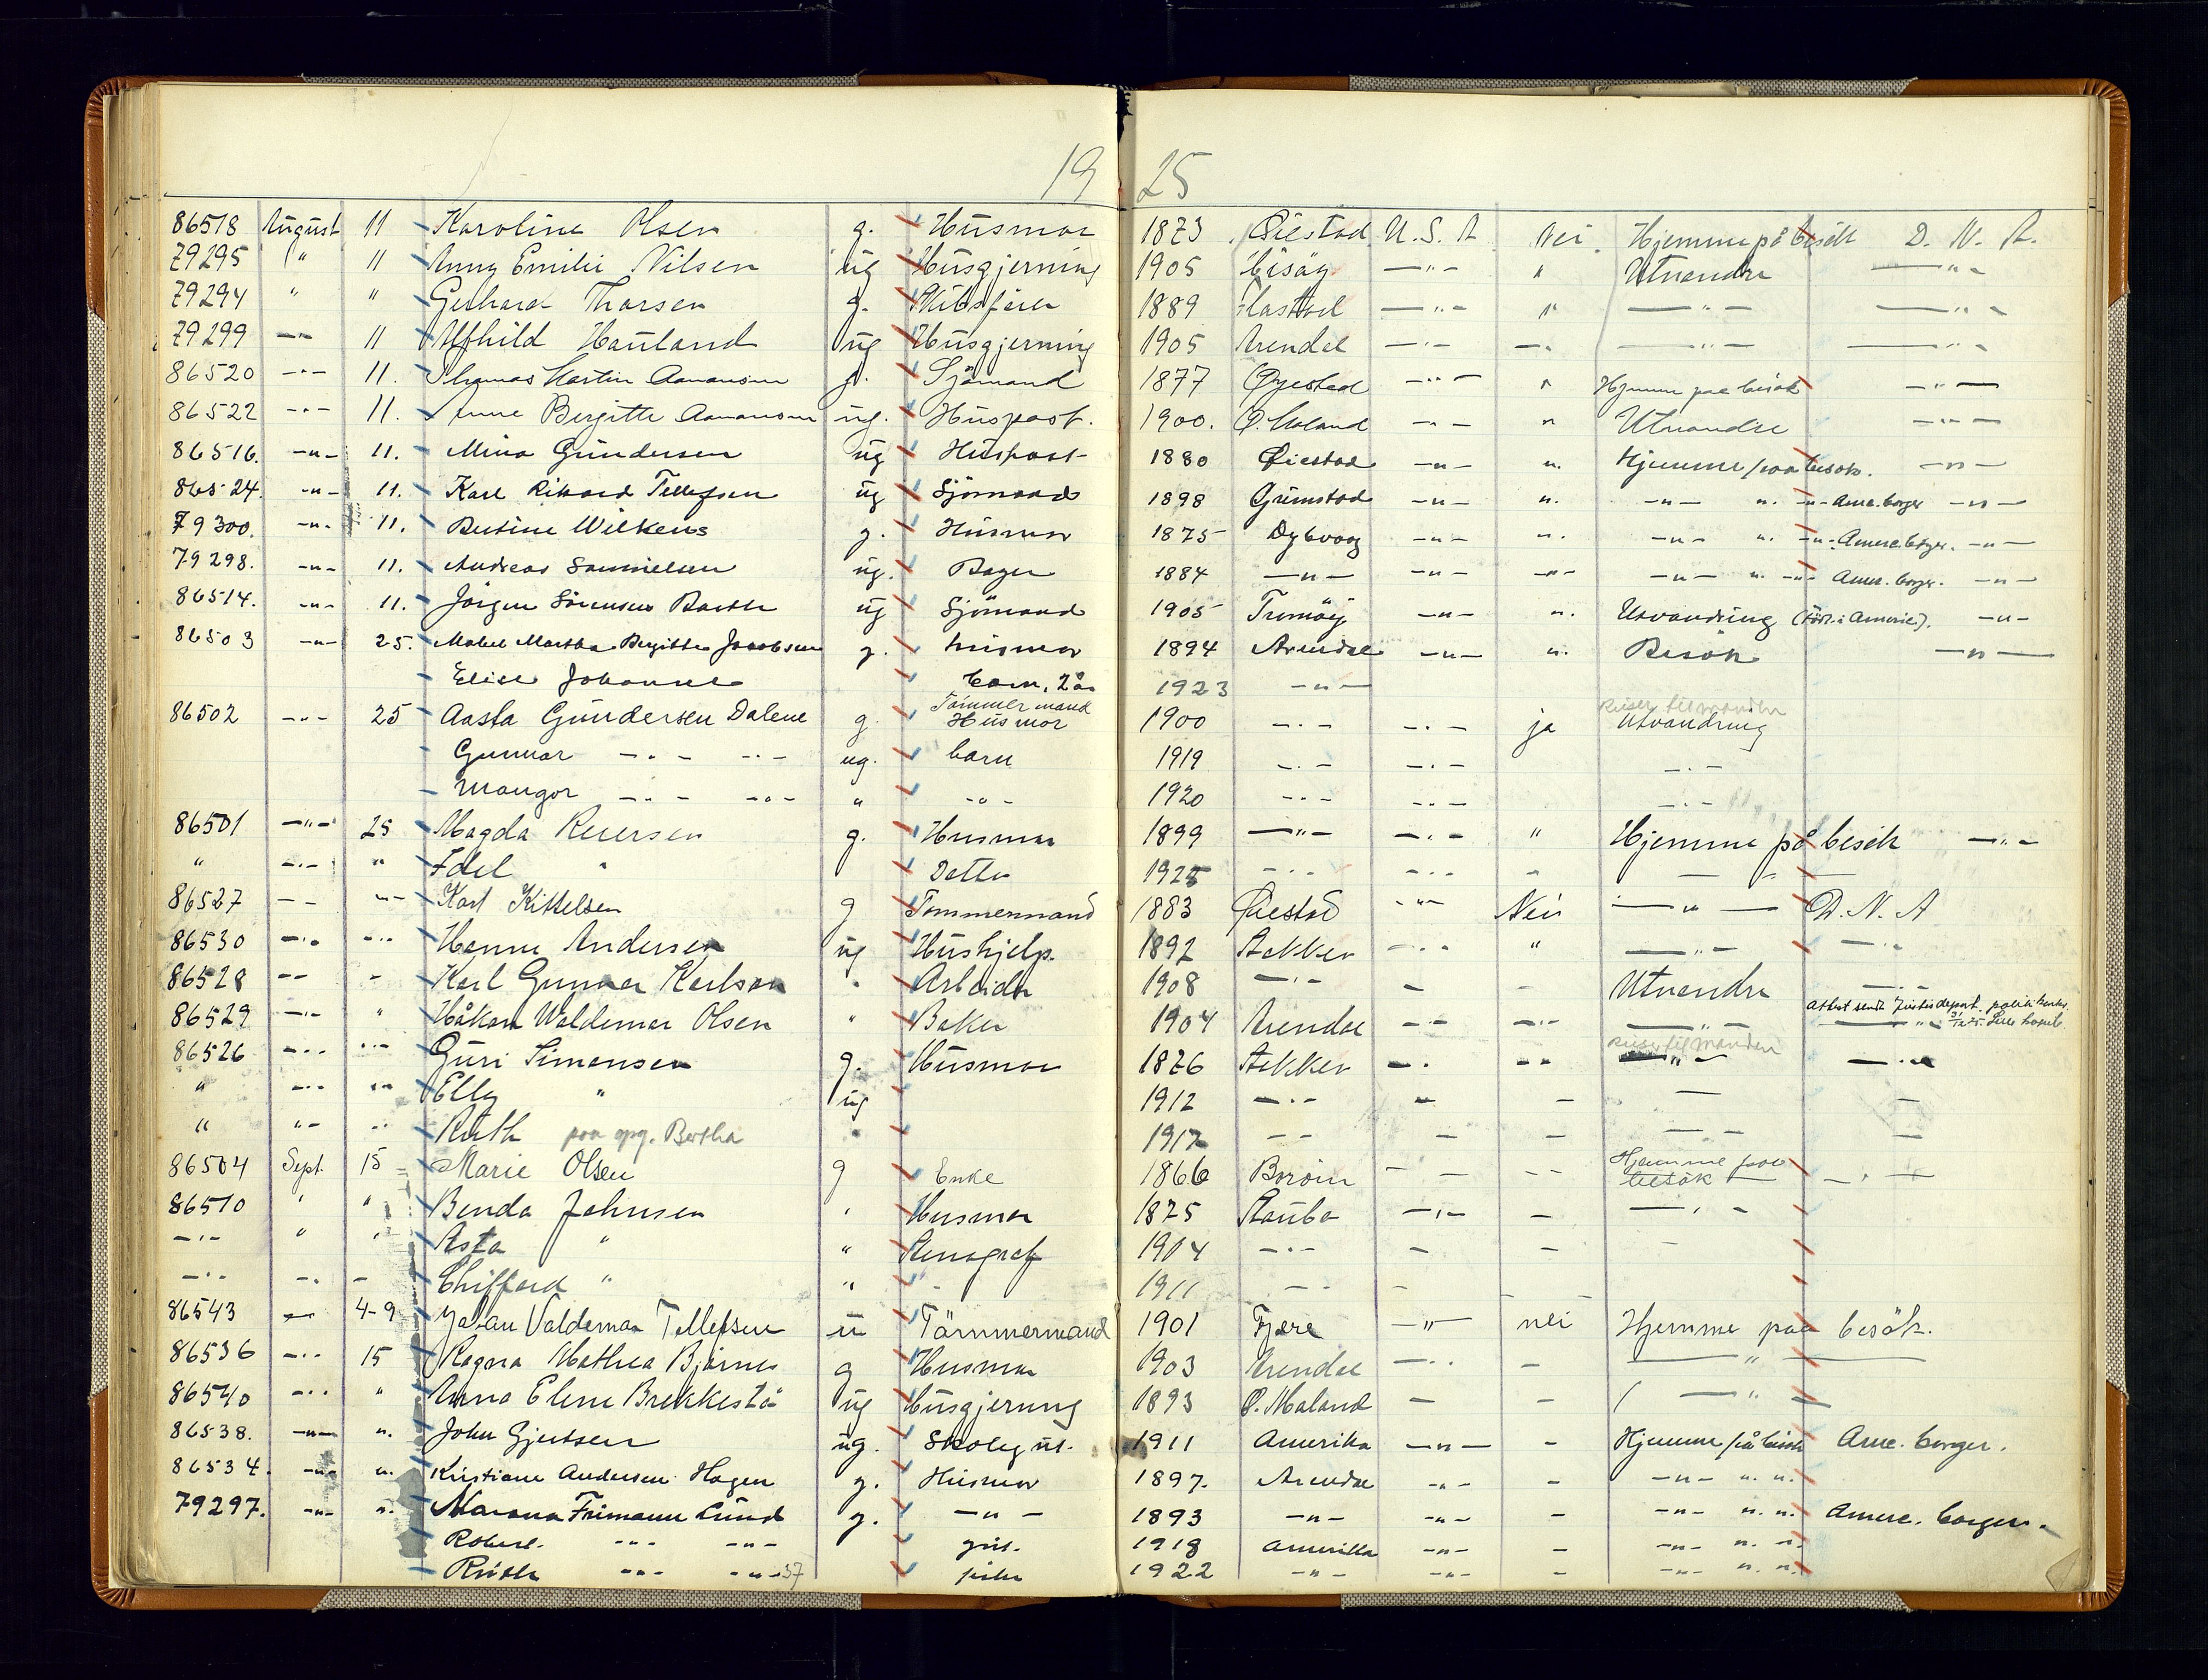 19 25
86518 August 11 Karoline Olsen g. Husmor 1873 Øiestad U.S.A Nei Hjemme på besök D.N.A.
79295 " 11 Anny Emilie Nilsen ug Husgjerning 1905 Hisöy —"— " Utvandre —"—
79294 " " Gerhard Thorsen g. Skibsförer 1889 Hastad —"— " —"— —"—
79299 —"— 11 Alfhild Hauland ug Husgjerning 1905 Arendal —"— —"— —"— —"—
86520 —"— 11. Thomas Martin Aamansen g. Sjömand 1877 Øyestad —"— " Hjemme paa besök —"—
86522 —"— 11. Anne Bergitte Aamansen ug. Huspost. 1900. Ø. Moland —"— " Utvandre —"—
86516. —"— 11. Mina Gundersen ug Huspost 1880 Øiestad —"— ". Hjemme paa besök. —"—
86524. —"— 11. Karl Rikard Tellefsen ug Sjömand 1898 Grimstad —"— ". —"— ". —"— Amr. borger —"—
79300. —"— 11. Bertine Wilkens g. Husmor 1875 Dybvaag —"— ". —"— ". —"— Amerc. borger. —"—
79298. —"— 11. Andreas Samuelsen ug. Bager 1884 —"— —"— —"— —"— ". —"— Amr. borger. —"—
86514. —"— 11. Jörgen Sörensen Barth ug Sjömand 1905 Tromöy —"— ". Utvandring (född i Americ). —"—
86503 —"— 25. Mabel Martha Bergitte Jacobsen g. husmor 1894 Arendal —"— ". Besök —"—
Elise Johanne barn, 2 år 1923 —"—
Tömmermand Reiser til manden
86502 —"— 25 Aasta Gundersen Dalene g. Husmor 1900 —"— —"— ja Utvandring
Gunnar —"— —"— ug. barn 1919 —"— —"— —"—
Mangor —"— —"— " —"— 1920 —"— —"— —"—
86501 —"— 25 Magda Reiersen g. Husmor 1899 —"— —"— " Hjemme på besök —"—
" —"— " Edel " Datter 1925 —"— —"— " — " —
86527 —"— —"— Karl Kittelsen g Tömmermand 1883 Øiestad —"— Nei —"— D.N.A
86530 —"— —"— Hanne Andersen ug Hushjelp. 1892 Stokken —"— " —"— —"—
86528 —"— " Karl Gunnar Karlsen " Arbeider 1908 —"— — — Utvandre —"—
Attest sendt Justisdepart. politikontor
86529 —"— " Håkon Waldemar Olsen " Baker 1904 Arendal —"— —"— —"— —"—
Reiser til manden
86526 —"— —"— Guri Simonsen g. Husmor 1876 Stokken —"— —"— —"— —"—
" —"— —"— Elly " ug 1912 —"— — — — —
" —"— —"— Ruth paa opg. Bertha " 1917 —"— — — —"— —
86504 Sept. 15 Marie Olsen g Enke 1866 Boröen —"— —"— Hjemme paa besök —"—
86510 " " Benda Johnsen " Husmor 1875 Staubö —"— — —"—
—"— " " Asta " " Stenograf 1904 —"— — — —
—"— —"— — Chifford " " — 1911 —"— —
86543 —"— 4-9 Johan Valdemar Tellefsen u Tömmermand 1901 Fjære —"— nei Hjemme paa besök.
86536 —"— 15 Ragna Mathea Bjørnes g Husmor 1903 Arendal —"— — —"—
86540 —"— " Anna Elene Brekkestö ug Husgjerning 1893 Ø. Moland — — —"— —
86538. —"— ". John Gjertsen ug. Skolegut. 1911 Amerika —"— — Hjemme på besök Ame. borger.
86534. —"— ". Kristiane Andersen Hagen g. Husmor 1897. Arendal —"— — —"— ". ".
79297. —"— ". Marana Frimann Lund g. —"— 1893 —"— —"— — —"— ". ". Amerc. borger.
Robert. —"— —"— gut. 1918 Amerika —"— — —"— ". ".
Ruth —"— —"— 37 pike 1922 —"— —"— — —"— ". ".